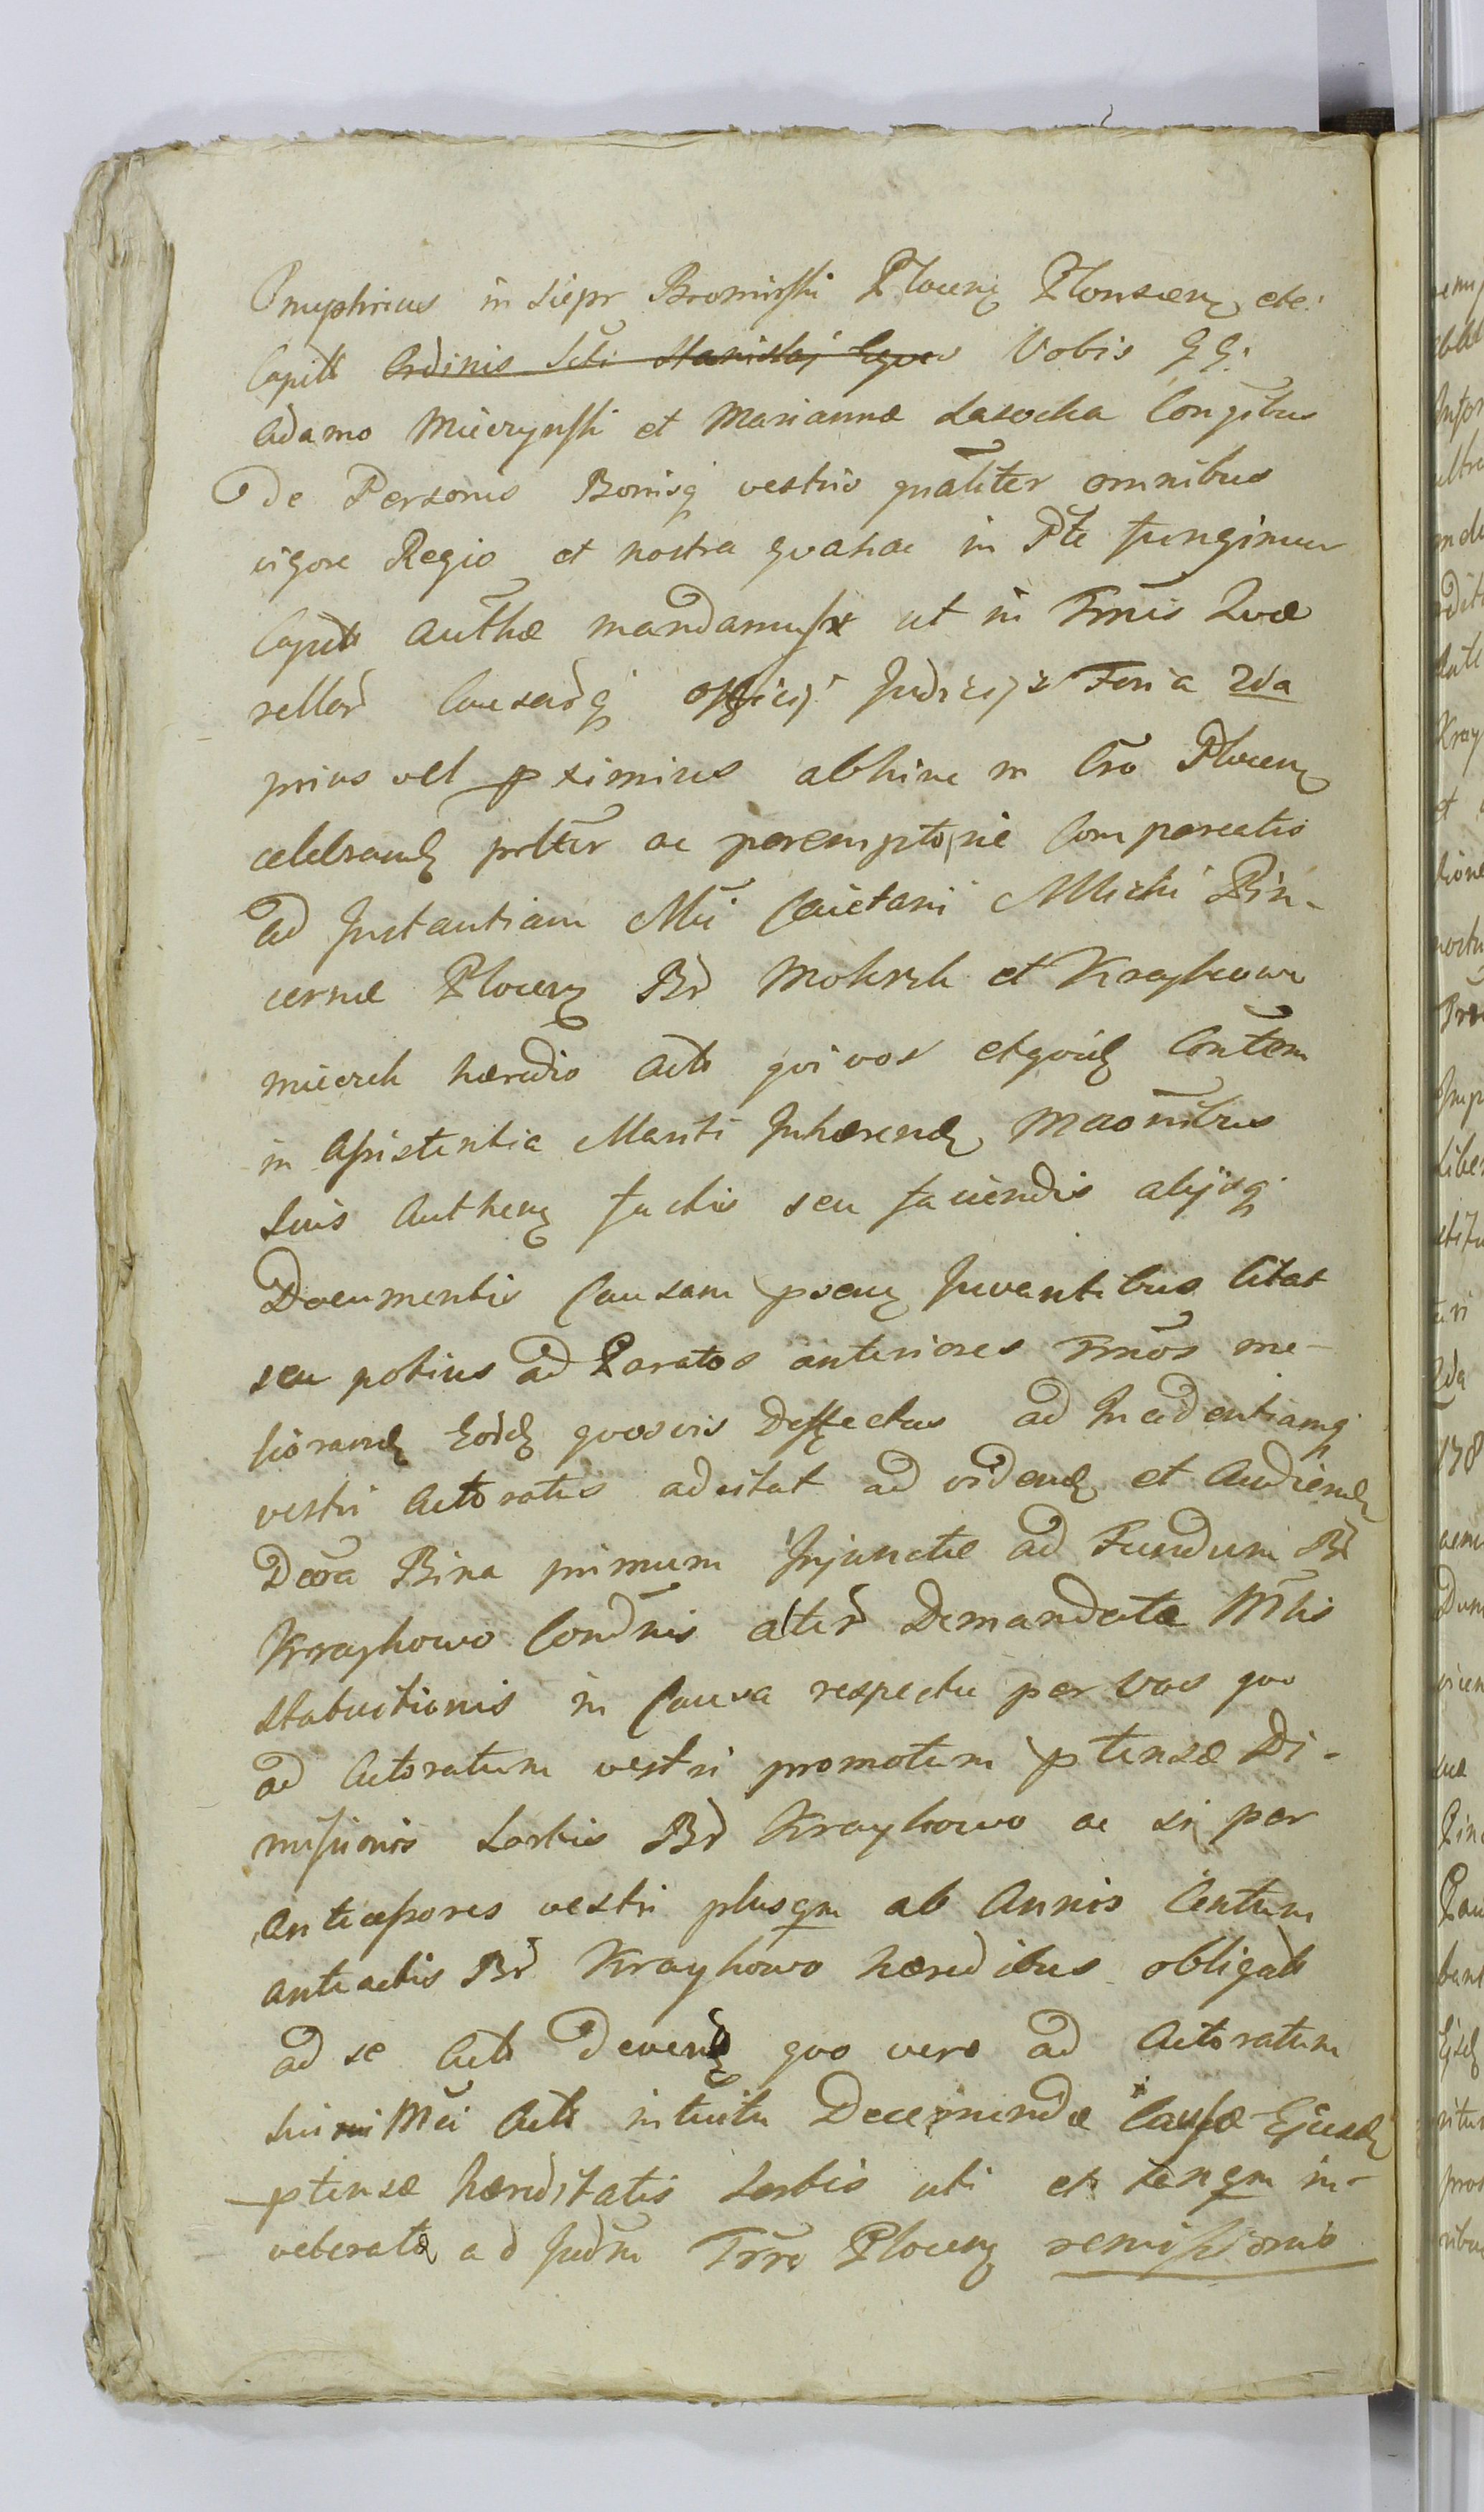 Onuphrius in Siepr Bromirski Plocens Plonscens etc:
Capits Ordinis Scti Stanislaj Eques Vobis GG:
Adamo Mierzynski et Mariannæ Lasocka Conjibus
De Personis Bonisq vestris qualiter omnibus
vigore Regio et nostra qua hac in Pte fungimur
Capits autthæ mandamus ut in Tmis Quæ
rellar Causarq Officij Judicij Feria 2da
prius vel pximius abhinc in Cro Plocens
celebrand pltter ac peremptorie Compareatis
ad Instantiam Mci Caietani Mlicki Pin-
cernæ Plocens Br Mokrzk et Kraykowo
mierzch hæredis Acts qui vos etquid Contem
in Assistentia Mariti Inhærend Maonibus
suis Authens factis seu faciendis alijsq
Documentis Causam psens Juvantibus Citat
seu potius ad Paratos anteriores Tmos me-
liorand Eord quosvis Deffectus ad Incidentiamq
vestri Actoratus adcitat ad vidend et Audiend
Decra Bina primum Injunctæ ad Fundum Br
Kraykowo Condnis alter Demandatæ Mtis
statuitionis in Causa respectu per vos quo
ad Actoratum vestri promotum ptensæ Di-
missionis Sortis Br Kraykowo ac si per
Anticessores vestri plusqm ab Annis Centum
anteactis Br Kraykowo hæredibus obligats
ad se Acts Devend quo vero ad Actoratum
sui Mci Acts intuitu Decernendæ Causæ Ejusd
ptensæ hæreditatis Sortis uti et tanqm in-
veterata ad Judm Trre Plocens remissionis